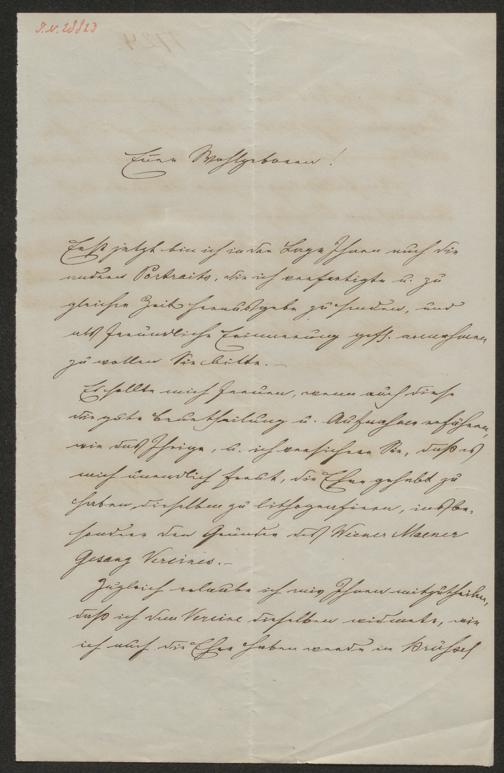 I.N. 28823
Euer Wohlgeboren!
Erst jetzt bin ich in der Lage Ihnen auch die
andern Portraits, die ich verfertigte u. zu
gleicher Zeit herausgebe zu senden, und
als freundliche Erinnerung gefl. annehmen
zu wollen Sie bitte.
Es sollte mich freuen, wenn auch diese
die gute Beurtheilung u. Aufnahme erfahren,
wie das Ihrige, u. ich versichere Sie, daß es
mich unendlich freut, die Ehre gehabt zu
haben, dieselben zu lithografiren, insbe-
sondere den Gründer des Wiener Maener
Gesang Vereines.–
Zugleich erlaube ich mir Ihnen mitzutheilen,
daß ich dem Vereine dieselben widmete, wie
ich auch die Ehre haben werde in